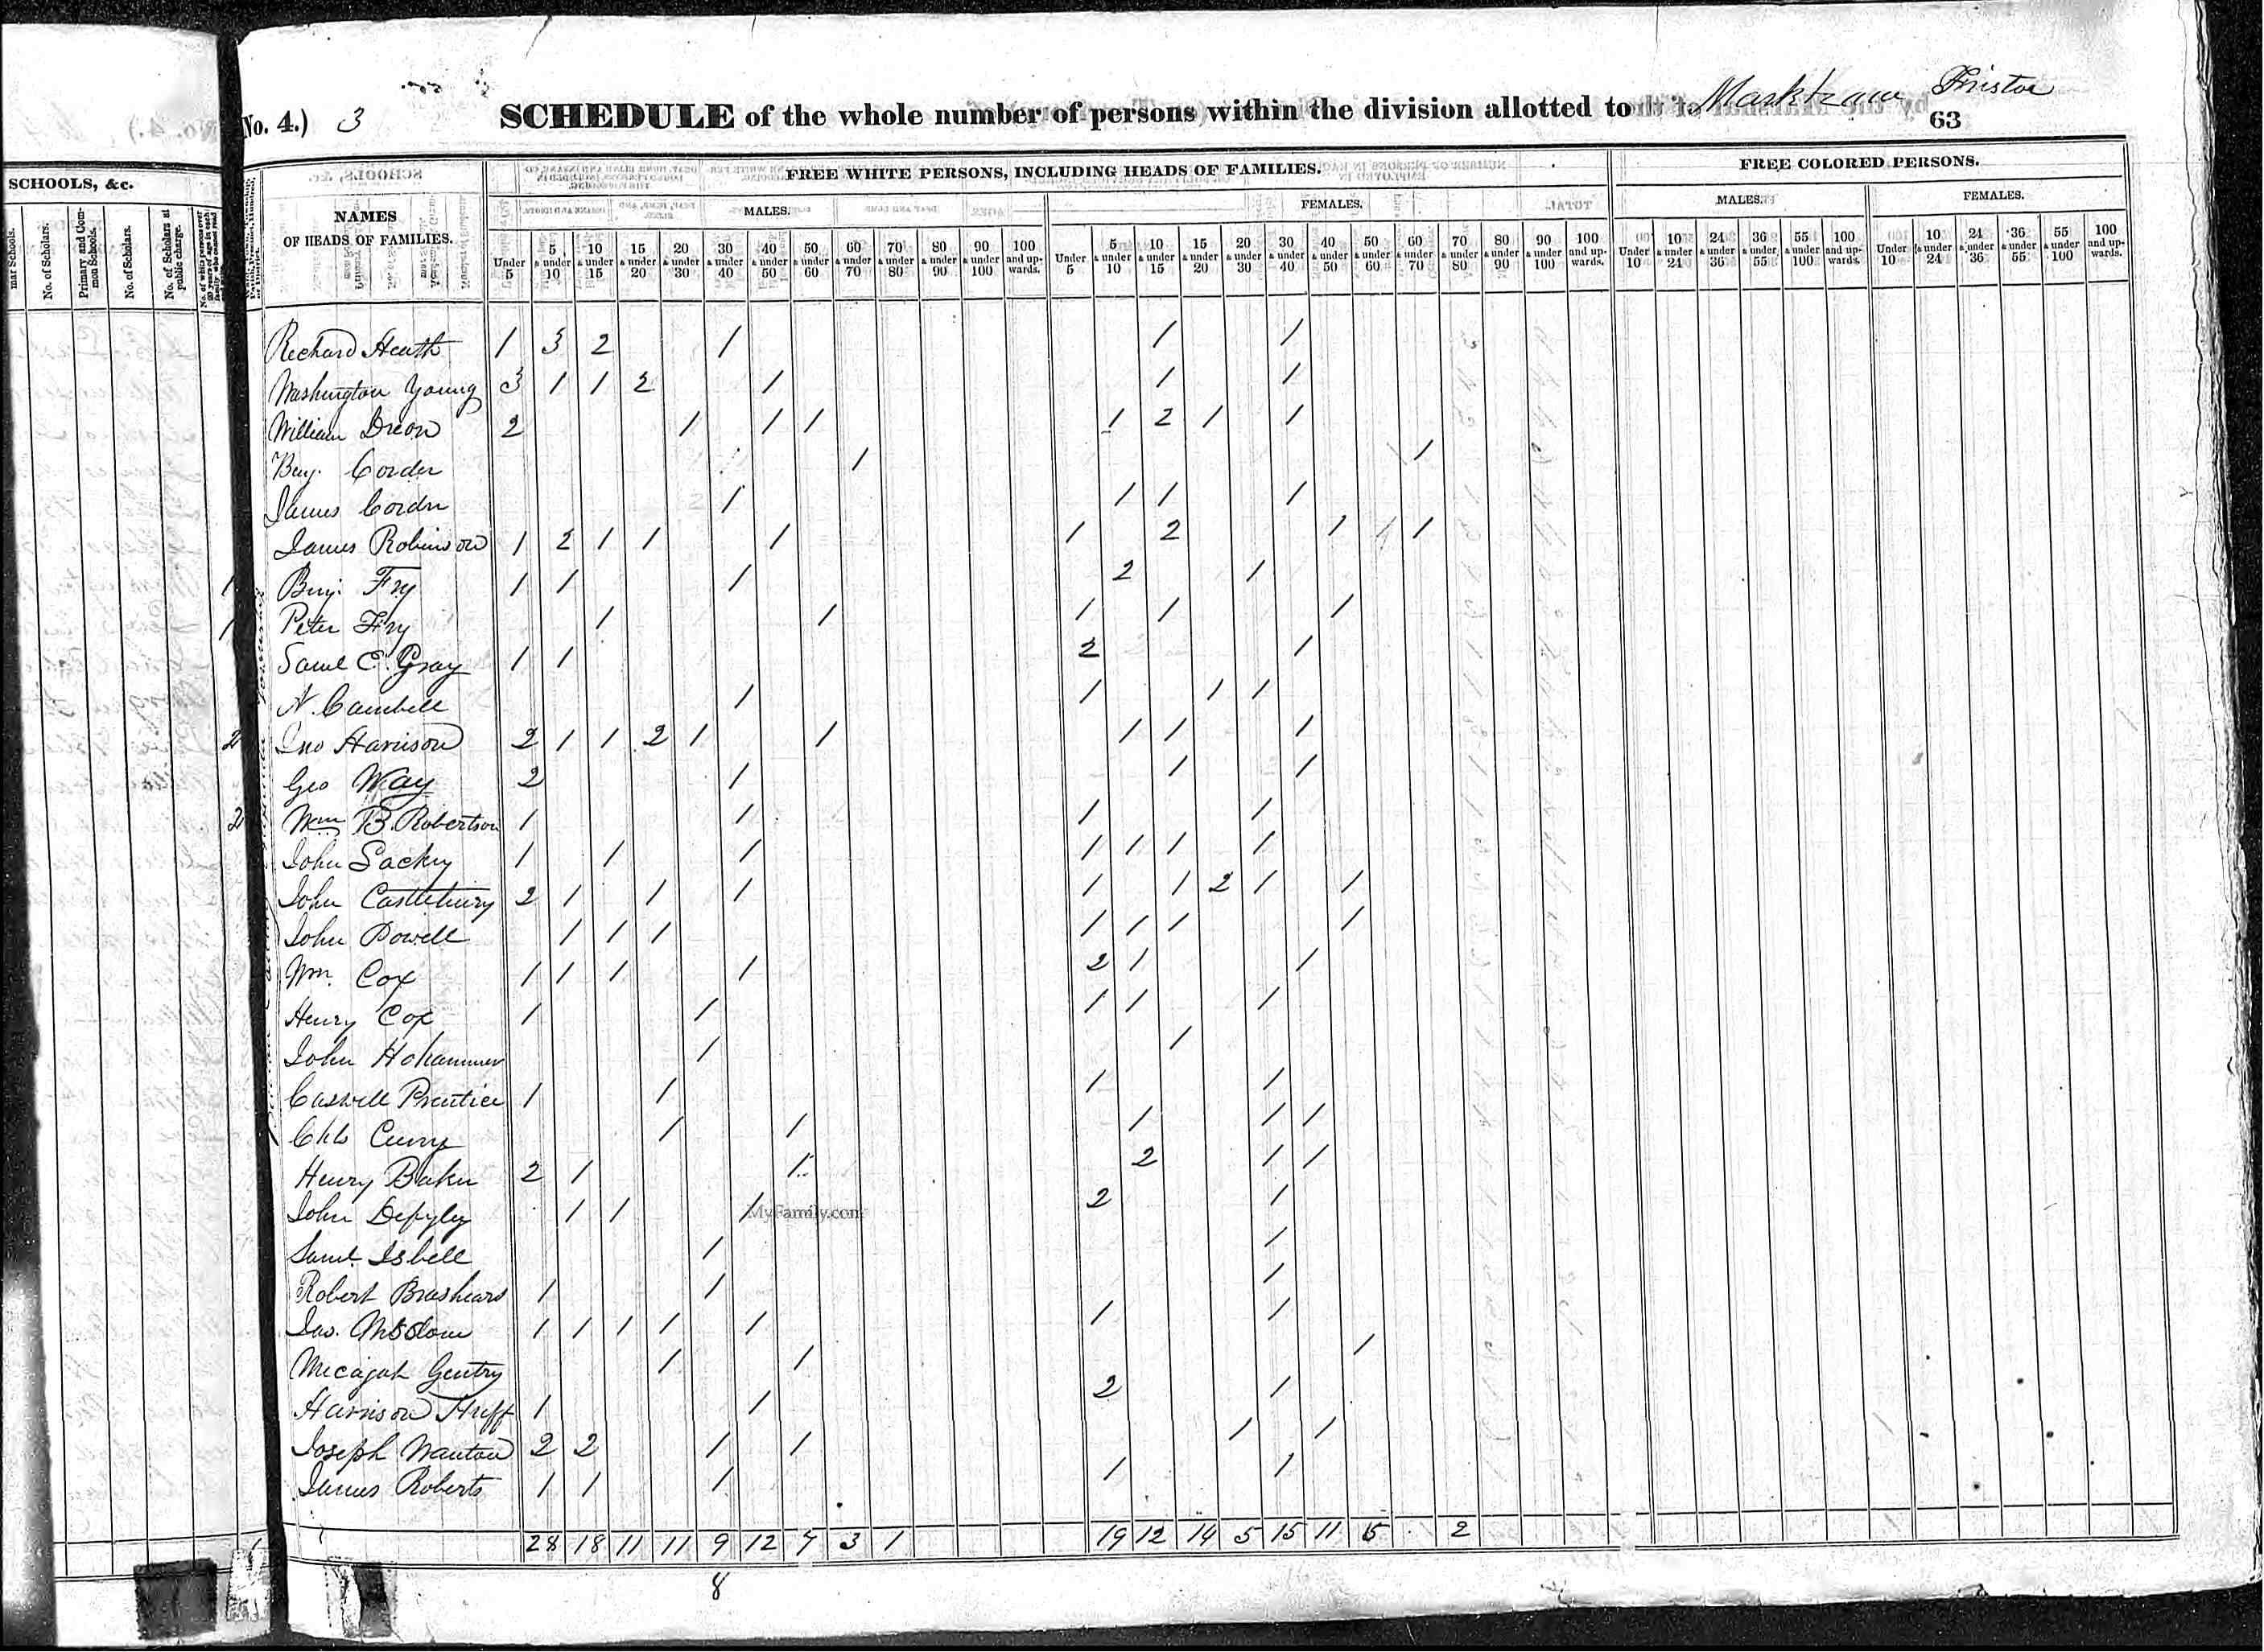 No. 4.) 3 SCHEDULE of the whole number of persons within the division allotted to Fristoe
63
SCHOOLS, &c.
mar Schools.
No. of Scholars.
Primary and Common Schools.
No. of Scholars.
No. of Scholars at public charge.
NAMES
OF HEADS OF FAMILIES.
FREE WHITE PERSONS, INCLUDING HEADS OF FAMILIES.
FREE COLORED PERSONS.
MALES. FEMALES. MALES. FEMALES.
Under 5 5 & under 10 10 & under 15 15 & under 20 20 & under 30 30 & under 40 40 & under 50 50 & under 60 60 & under 70 70 & under 80 80 & under 90 90 & under 100 100 and upwards.
Under 5 5 & under 10 10 & under 15 15 & under 20 20 & under 30 30 & under 40 40 & under 50 50 & under 60 60 & under 70 70 & under 80 80 & under 90 90 & under 100 100 and upwards.
Under 10 10 & under 24 24 & under 36 36 & under 55 55 & under 100 100 and upwards.
Under 10 10 & under 24 24 & under 36 36 & under 55 55 & under 100 100 and upwards.
Richard Heath 1 3 2 1 1 1
Washington Young 3 1 1 2 1 1 1
William Dixon 2 1 1 1 1 2 1 1
Benj. Corder 1 1
James Corder 1 1 1 1
James Robinson 1 2 1 1 1 1 2 1 1
1 Benj. Fry 1 1 1 2 1
1 Peter Fry 1 1 1 1 1
Saml E. Gray 1 1 2 1
N. Cambell 1 1 1 1
2 Jno Harrison 2 1 1 2 1 1 1 1 1
Geo Way 2 1 1 1
2 Wm B. Robertson 1 1 1 1
John Lackey 1 1 1 1 1 1 1
John Castlebury 2 1 1 1 1 1 2 1 1
John Powell 1 1 1 1 1 1 1
Wm. Cox 1 1 1 1 2 1 1
Henry Cox 1 1 1 1 1
John Hohammer 1 1
Caswell Prentice 1 1 1 1
Chls Curry 1 1 1 1 1
Henry Baker 2 1 1 2 1 1
John Depyley 1 1 1 2 1
Saml. Isbell 1 1
Robert Brashears 1 1 1
Jas. 1 1 1 1 1 1 1
Micajah Gentry 1 1 1
Harrison Huff 1 1 2 1
Joseph Wanton 2 2 1 1 1 1
James Roberts 1 1 1 1 1
MyFamily.com
28 18 11 11 9 12 7 3 1 19 12 14 5 15 11 5 2
8